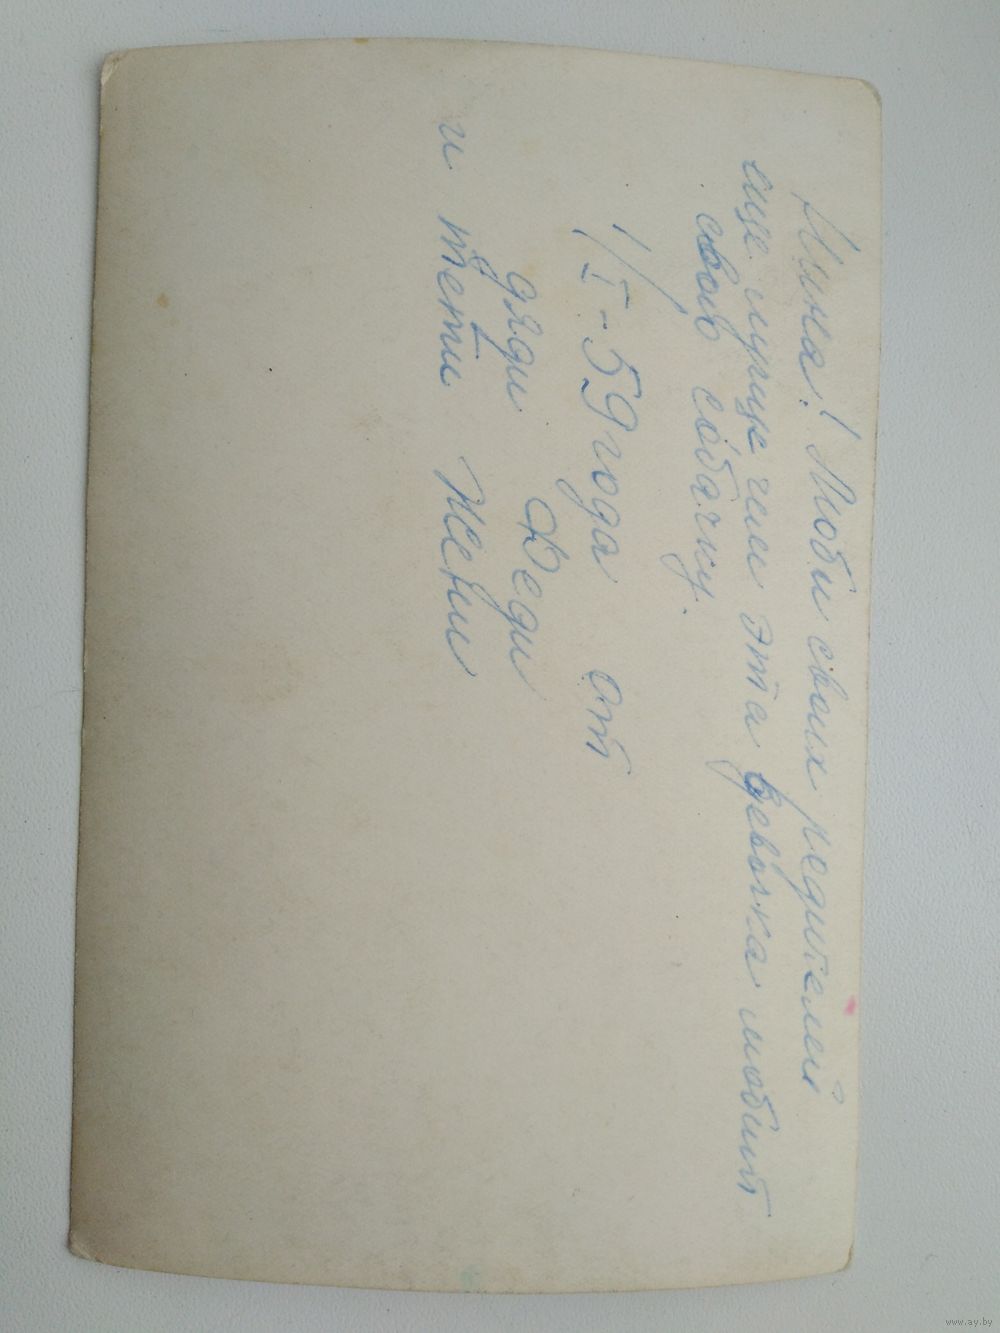 Нина! Люби своих родителей
еще лучше чем эта девочка любит
свою собачку.
1/I-59 года от
дяди Феди
и тети Жени
www.ay.by